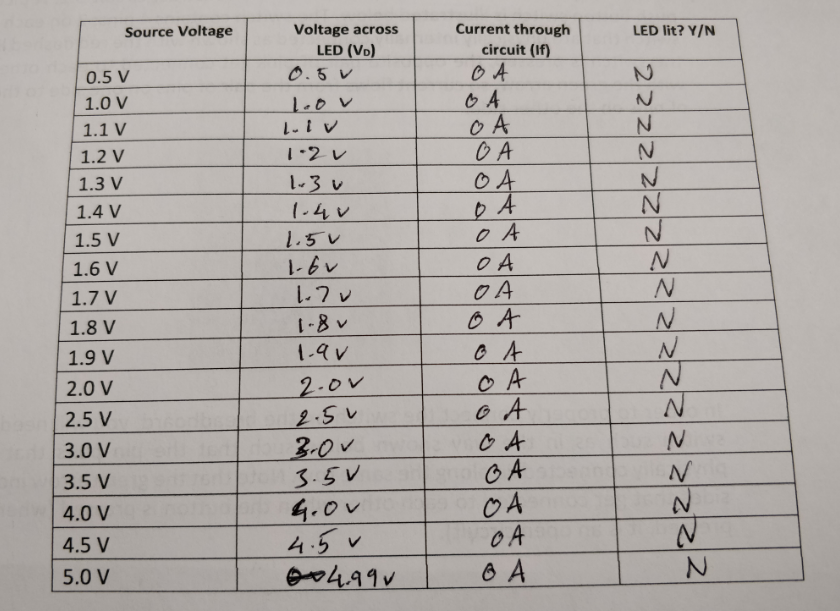 Source Voltage Voltage across LED (VD) Current through circuit (If) LED lit? Y/N
0.5 V 0.5 v 0 A N
1.0 V 1.0 v 0 A N
1.1 V 1.1 v 0 A N
1.2 V 1.2 v 0 A N
1.3 V 1.3 v 0 A N
1.4 V 1.4 v 0 A N
1.5 V 1.5 v 0 A N
1.6 V 1.6 v 0 A N
1.7 V 1.7 v 0 A N
1.8 V 1.8 v 0 A N
1.9 V 1.9 v 0 A N
2.0 V 2.0 v 0 A N
2.5 V 2.5 v 0 A N
3.0 V 3.0 v 0 A N
3.5 V 3.5 v 0 A N
4.0 V 4.0 v 0 A N
4.5 V 4.5 v 0 A N
5.0 V 4.99 v 0 A N